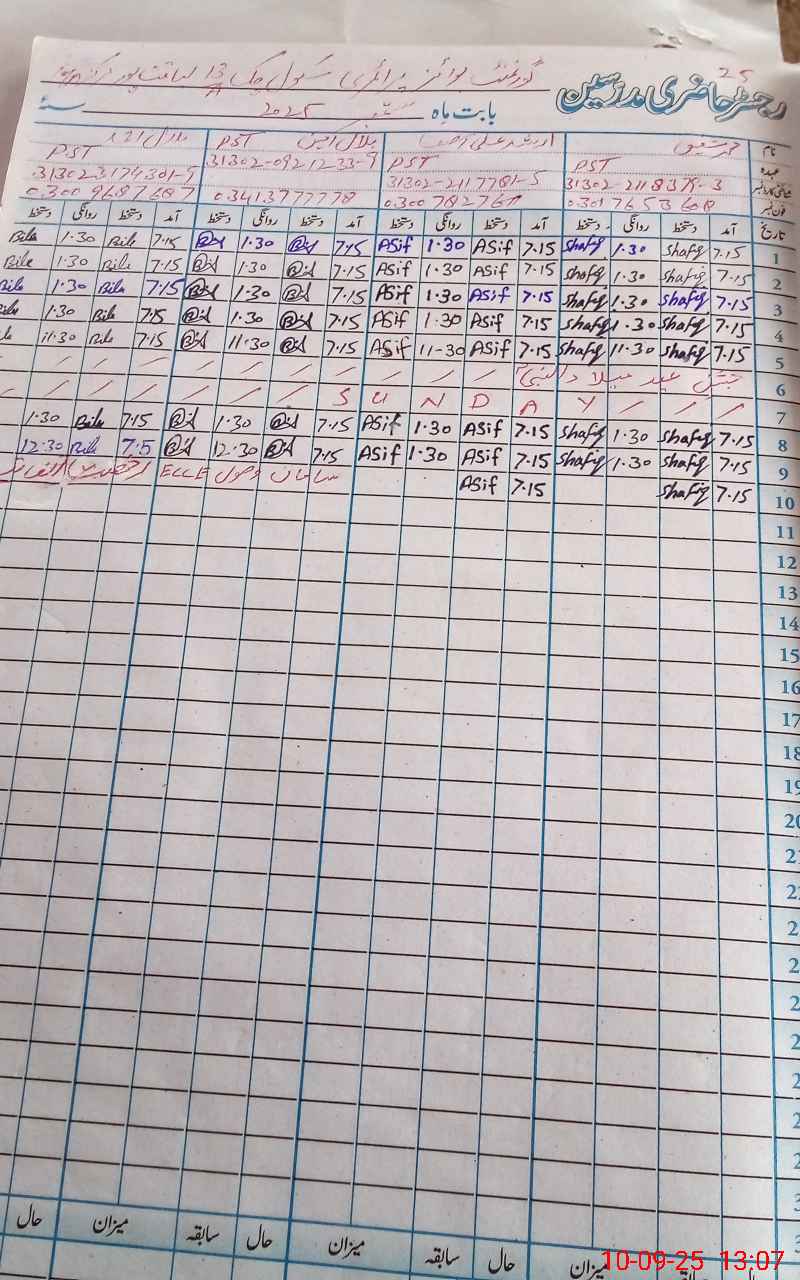 25
رجسٹر حاضری مدرسین
گورنمنٹ بوائز پرائمری سکول چک 13/A لیاقت پور
بابت ماہ ستمبر 2025 سنہ
نام محمد شفیق ارشد علی آصف بلال امین بلال احمد
عہدہ PST PST PST PST
شناختی کارڈ نمبر 31302-2118375-3 31302-2117781-5 31302-0921233-9 313023174301-5
فون نمبر 03017653608 0300782761 03413777778 03009687687
تاریخ آمد دستخط روانگی دستخط آمد دستخط روانگی دستخط آمد دستخط روانگی دستخط آمد دستخط روانگی دستخط
1 7.15 Shafiq 1.30 Shafiq 7.15 ASif 1.30 ASif 7.15 1.30 7.15 Bila 1.30 Bila
2 7.15 Shafiq 1.30 Shafiq 7.15 ASif 1.30 ASif 7.15 1.30 7.15 Bila 1.30 Bila
3 7.15 Shafiq 1.30 Shafiq 7.15 ASif 1.30 ASif 7.15 1.30 7.15 Bila 1.30 Bila
4 7.15 Shafiq 1.30 Shafiq 7.15 ASif 1.30 ASif 7.15 1.30 7.15 Bila 1.30 Bila
5 7.15 Shafiq 11.30 Shafiq 7.15 ASif 11-30 ASif 7.15 11.30 7.15 Bila 11.30
6 جشن عید میلادالنبی / / / / / / / / / /
7 / / / S U N D A Y / / / / / /
8 7.15 Shafiq 1.30 Shafiq 7.15 ASif 1.30 ASif 7.15 1.30 7.15 Bila 1.30
9 7.15 Shafiq 1.30 Shafiq 7.15 ASif 1.30 ASif 7.15 12.30 7.5 Bila 12.30
10 7.15 Shafiq 7.15 ASif سامان وصول ECCE رخصت اتفاقیہ
11
12
13
14
15
16
17
18
19
20
2
2
2
2
2
2
2
2
2
3
3
حال میزان سابقہ حال میزان سابقہ حال میزان سابقہ
10-09-25 13:07